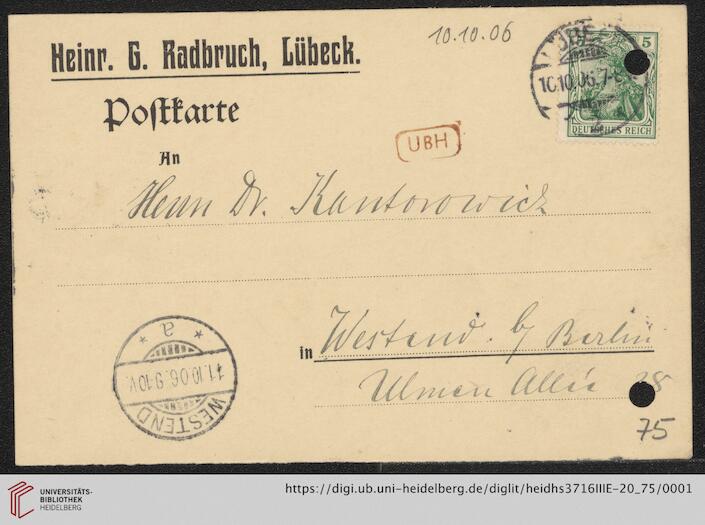 Heinr. G. Radbruch, Lübeck.
10.10.06
LÜBE
10.10.06. 7-8
5
DEUTSCHES REICH
Poſtkarte
An
UBH
Herrn Dr. Kantorowicz
in Westend. b/ Berlin
Ulmen Allée 28
75
WESTEND
11.10.06.9-10V.
* a *
UNIVERSITÄTS-
BIBLIOTHEK
HEIDELBERG
https://digi.ub.uni-heidelberg.de/diglit/heidhs3716IIIE-20_75/0001